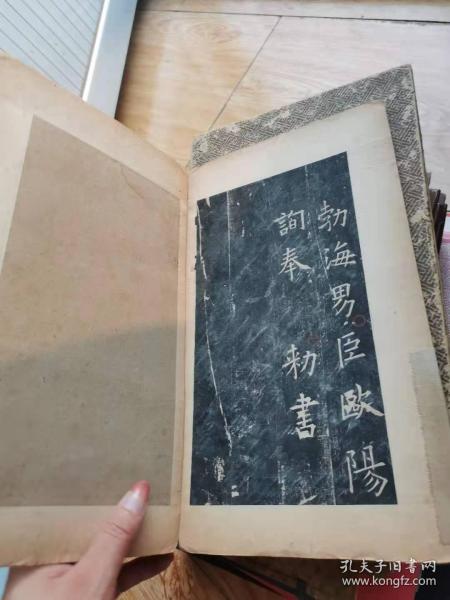 勃海男臣歐陽
詢奉 勅書
孔夫子旧书网
www.kongfz.com